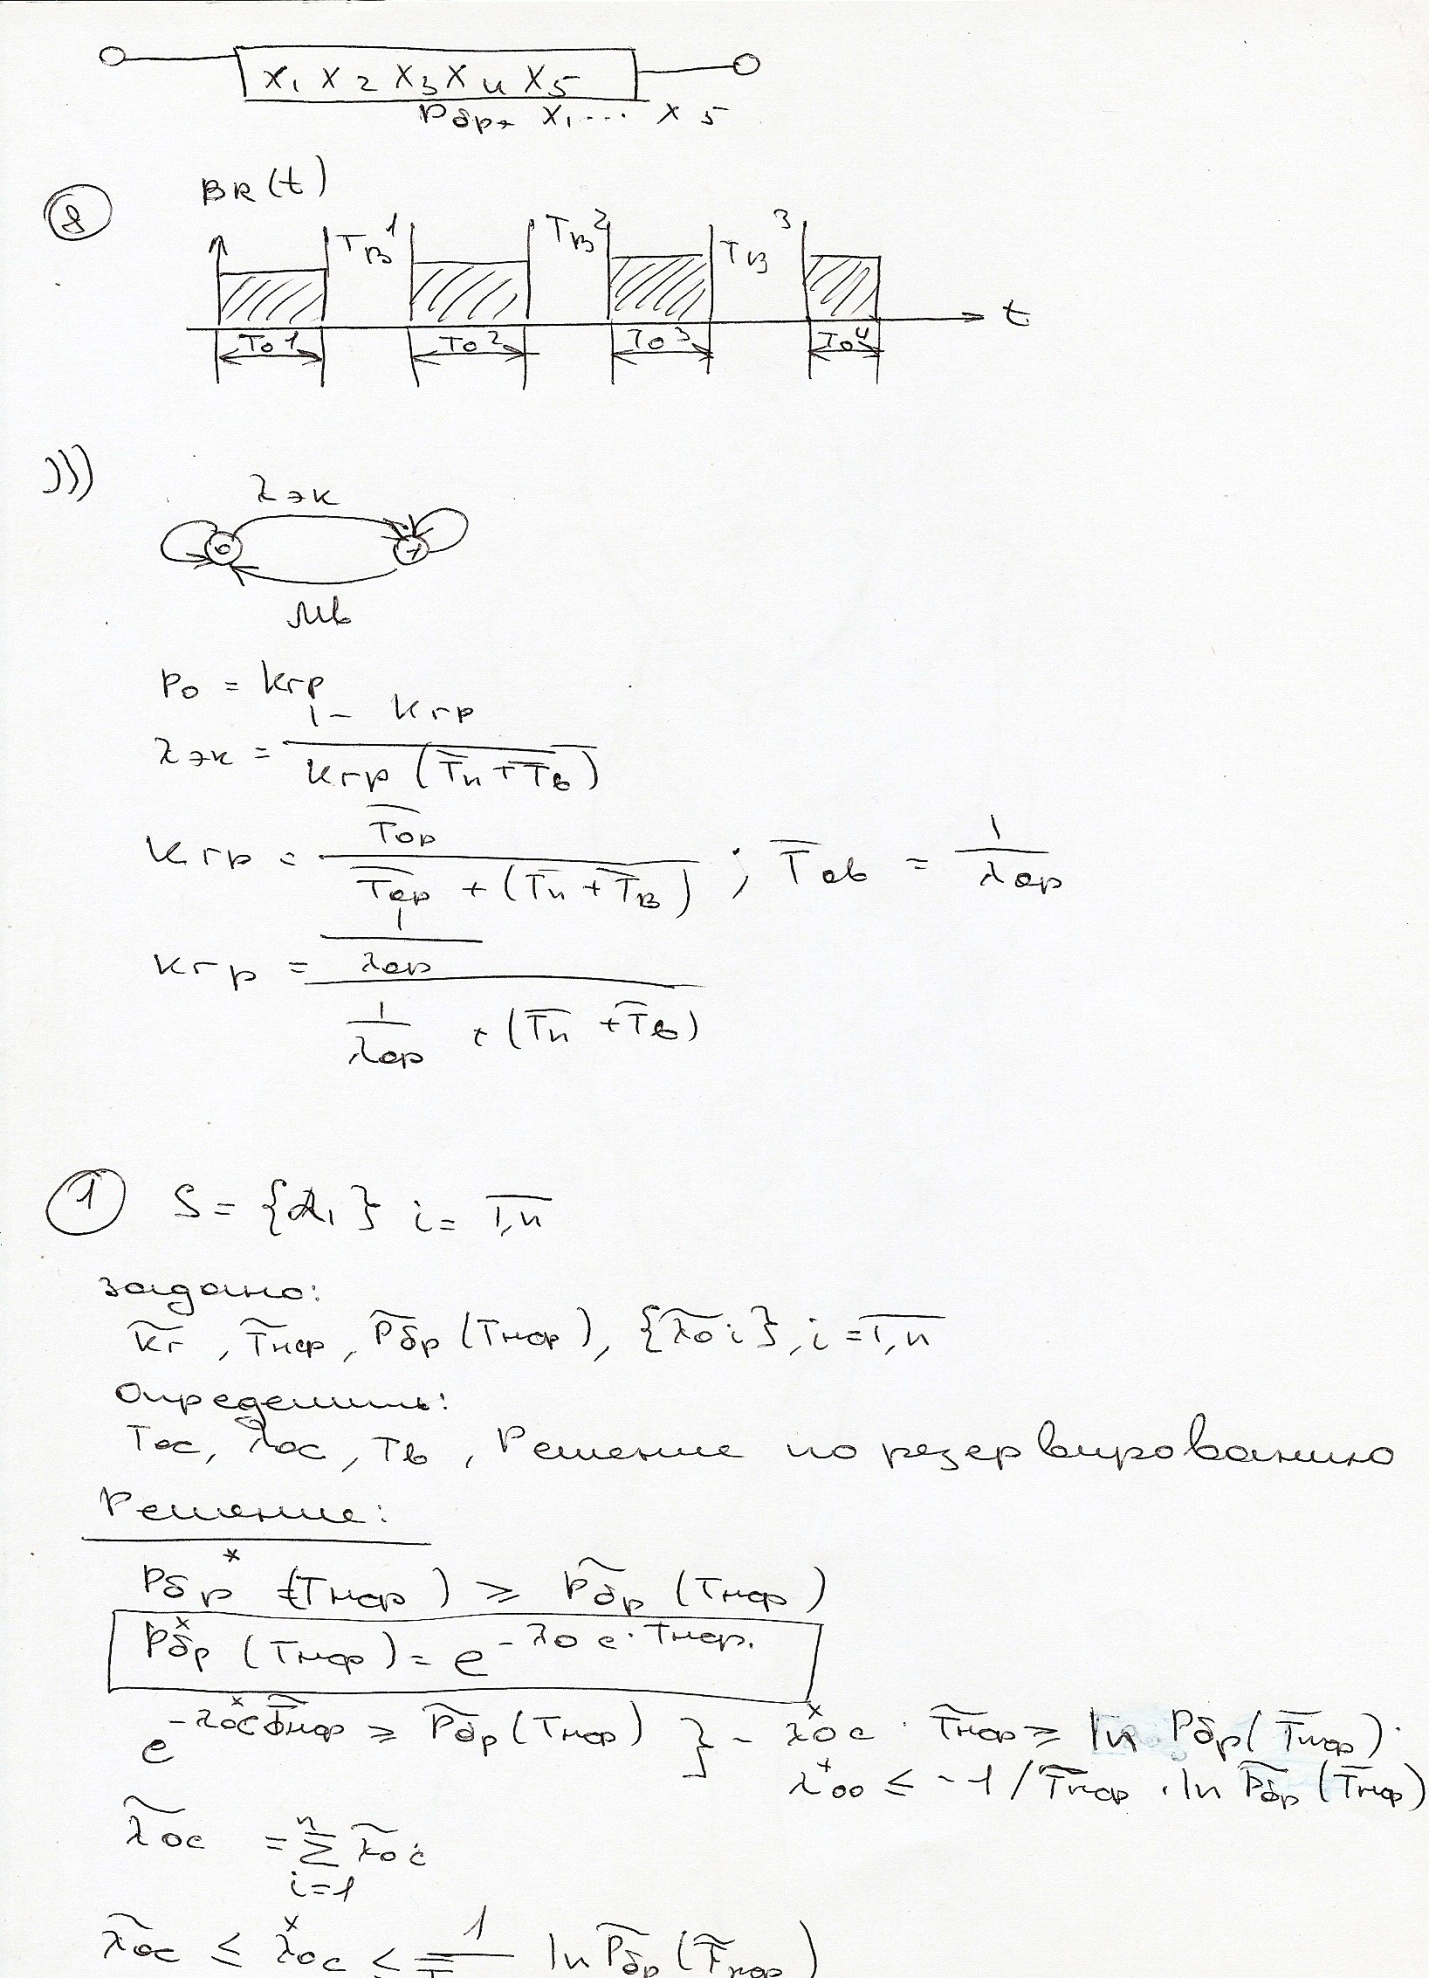 x₁ x₂ x₃ x₄ x₅
Pбр, x₁ ... x₅
8
BR(t)
Tв¹ Tв² Tв³
t
To1 To2 To3 To4
)))
λэк
0 1
μв
P₀ = Kгр
λэк = (1 - Kгр) / (Kгр (T̅п + T̅в))
Kгр = T̅ор / (T̅ор + (T̅п + T̅в)) ; T̅ов = 1 / λор
Kгр = (1 / λор) / (1 / λор + (T̅п + T̅в))
1 S = {α₁} i = 1,n
Задано:
K̃г, T̃нф, P̃бр (Tнф), {λ̃оi}, i = 1,n
Определить:
Toc, λoc, Tв, Решение по резервированию
Решение:
Pбр* (Tнф) ≥ P̃бр (Tнф)
Pбр* (Tнф) = e^(-λос · Tнф.)
e^(-λ*ос T̃нф) ≥ P̃бр (Tнф) } - λ*ос · T̃нф ≥ ln Pбр (T̅нф)
λ*оо ≤ -1 / T̃нф · ln P̃бр (T̃нф)
λ̃ос = Σ λ̃оi
n
i=1
λ̃ос ≤ λ*ос ≤ 1 ln P̃бр (T̃нф)